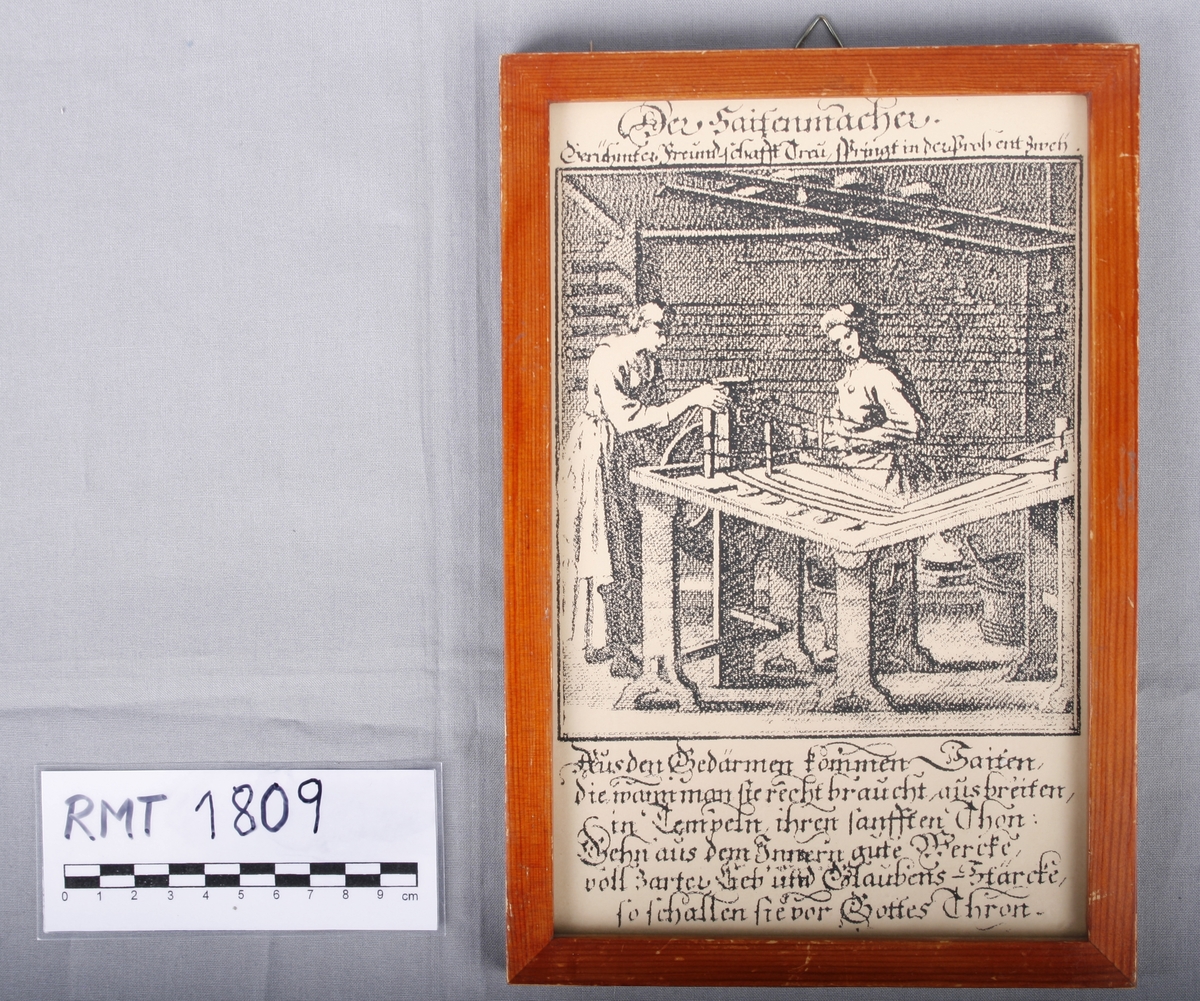 Der Saitenmacher.
Berühmter Freundschafft Treu, springt in der Prob entzweÿ.
Aus den Gedärmen kommen Saiten,
die, wann man sie recht braucht, ausbreiten,
in Tempeln, ihren sanfften Thon:
Gehn aus dem Innern gute Wercke,
voll zarter Lieb' und Glaubens-Stärcke,
so schallen sie vor Gottes Thron.
RMT 1809
0 1 2 3 4 5 6 7 8 9 cm